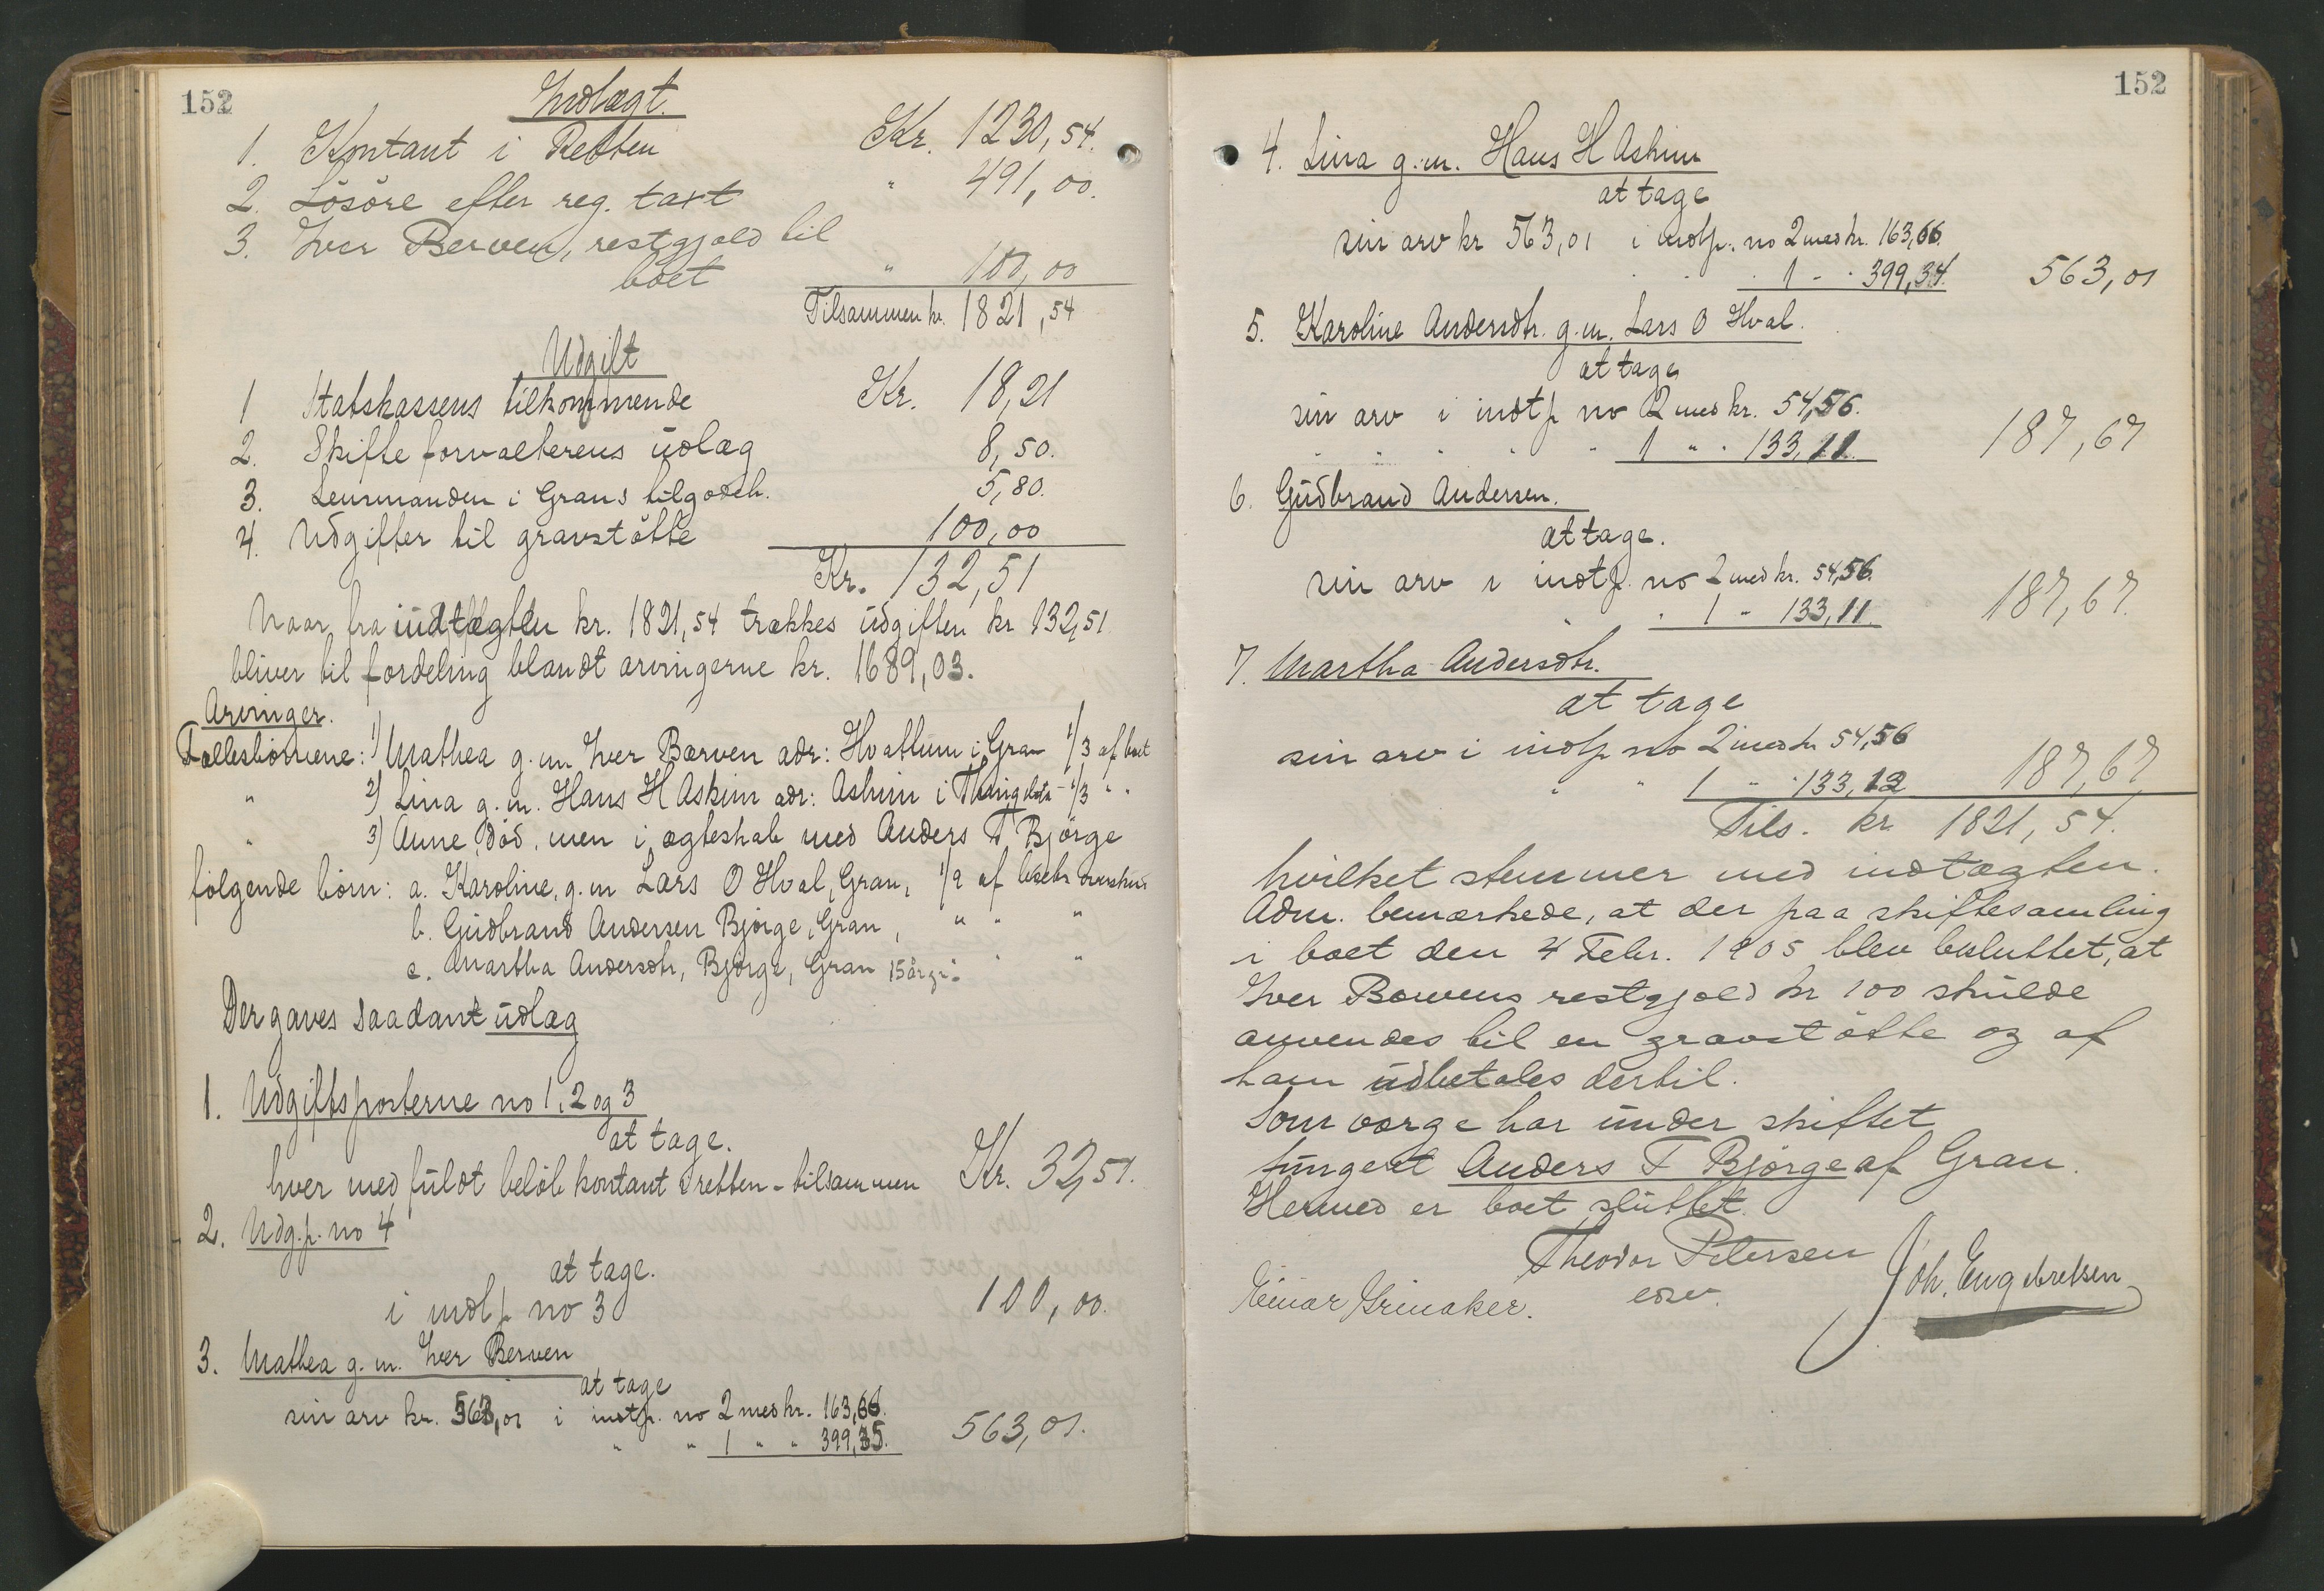 152
Indtægt.
1. Kontant i Retten Kr. 1230,54.
2. Lösöre efter reg. taxt " 491,00.
3. Iver Berven, restgjæld til
boet " 100,00
Tilsammen kr. 1821,54
Udgift
1 Statskassens tilkommende Kr. 18,21
2. Skifteforvalterens udlæg 8,50.
3. Lensmanden i Grans tilgodeh. 5,80.
4. Udgifter til gravstötte 100,00
Kr. 132,51
Naar fra indtægten kr. 1821,54 trækkes udgiften kr 132,51
bliver til fordeling blandt arvingerne kr. 1689,03.
Arvinger.
Fællesbørnene: 1) Mathea g. m Iver Bærven adr: Hvattum i Gran 1/3 af boet
" 2) Lina g. m. Hans H Askim adr: Askim i 1/3 " "
" 3) Anne, död, men i ægteskab med Anders T Bjørge
følgende børn: a. Karoline, g. m Lars O Hval, Gran, 1/9 af boets overskud
b. Gudbrand Andersen Bjørge, Gran, " " "
c. Martha Andersdtr, Bjørge, Gran 15 år gl. " "
Der gaves saadant udlæg
1. Udgiftsposterne no 1, 2 og 3
at tage.
hver med fuldt beløb kontant i retten - tilsammen Kr. 32,51.
2. Udg.p. no 4
at tage.
i indtp no 3 100,00.
3. Mathea g. m. Iver Berven
at tage
sin arv kr. 563,01 i indtp. no 2 med kr. 163,66.
" " 1 " " 399,35. 563,01.
152
4. Lina g. m. Hans H Askim
at tage
sin arv kr 563,01 i indtp. no 2 med kr. 163,66.
1 - - 399,34. 563,01
5. Karoline Andersdtr. g. m. Lars O Hval.
at tage
sin arv i indtp no 2 med kr. 54,56.
" " " " " 1 " " 133,11. 187,67
6. Gudbrand Andersen.
at tage.
sin arv i indtp. no 2 med kr. 54,56.
" 1 " 133,11. 187,67.
7. Martha Andersdtr.
at tage
sin arv i indtp no 2 med kr 54,56
" " 1 " " 133,12 187,67,
Tils. kr 1821,54.
hvilket stemmer med indtægten.
Adm. bemærkede, at der paa skiftesamling
i boet den 4 Febr. 1905 blev besluttet, at
Iver Bærvens restgjæld kr 100 skulde
anvendes til en gravstötte og af
ham udbetales dertil.
Som værge har under skiftet
fungert Anders T Bjørge af Gran.
Hermed er boet sluttet.
Theodor Petersen
edsv.
Einar Grinaker.
Joh. Engebretsen